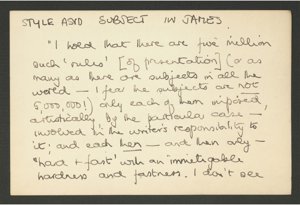 STYLE AND SUBJECT IN JAMES
"I hold that there are five million
such 'rules' [of presentation] (or as
many as there are subjects in all the
world — I fear the subjects are not
5,000,000!) only each of them imposed,
artistically, by the particular case —
involved in the writer's responsibility to
it; and each then — and then only —
"hard & fast" with an immitigable
hardness and fastness. I don't see